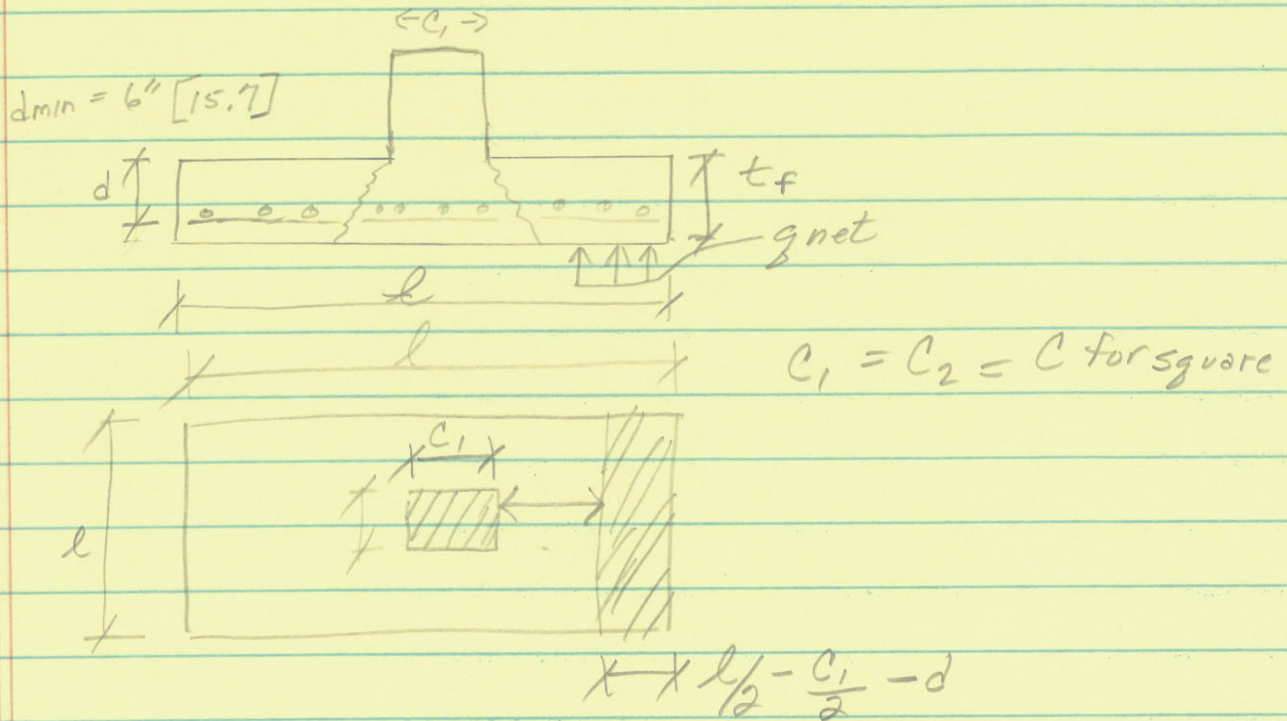 C₁
dmin = 6" [15.7]
d
tf
qnet
l
l
C₁ = C₂ = C for square
C₁
l
l/2 - C₁/2 - d